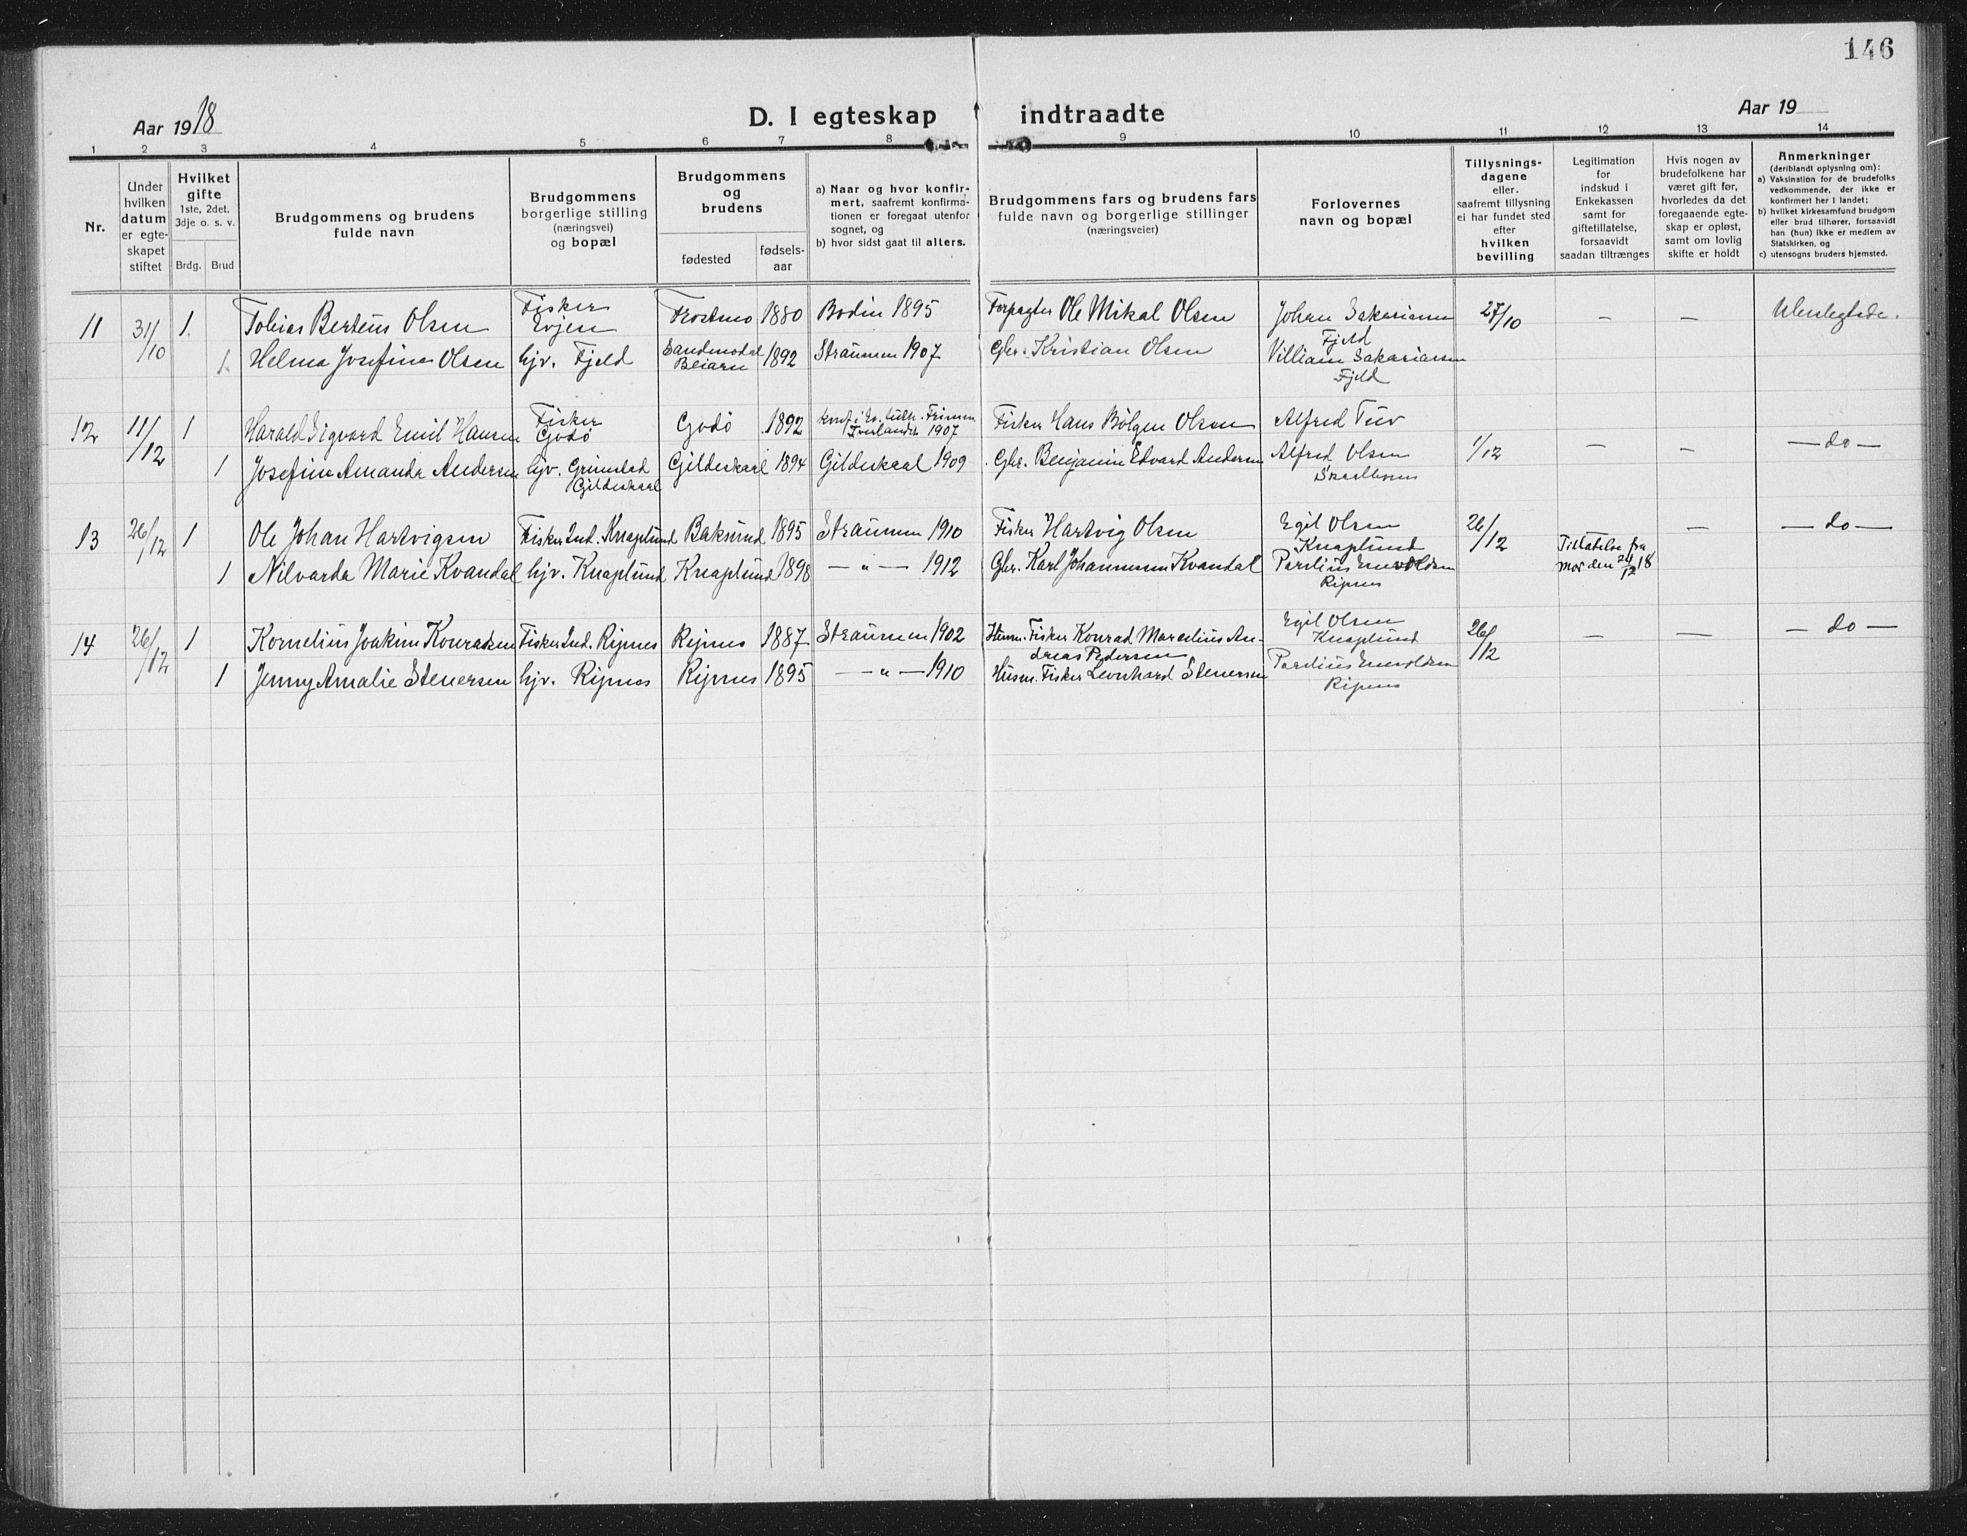 146
Aar 1918
D. I egteskap indtraadte
Aar 19
1 2 3 4 5 6 7 8 9 10 11 12 13 14
Nr.
Under hvilken datum er egte-skapet stiftet
Hvilket gifte
1ste, 2det, 3dje o. s. v.
Brdg. Brud
Brudgommens og brudens fulde navn
Brudgommens borgerlige stilling (næringsvei) og bopæl
Brudgommens og brudens
fødested
fødsels-aar
a) Naar og hvor konfir-mert, saafremt konfirma-tionen er foregaat utenfor sognet, og
b) hvor sidst gaat til alters.
Brudgommens fars og brudens fars fulde navn og borgerlige stillinger (næringsveier)
Forlovernes navn og bopæl
Tillysnings-dagene eller. saafremt tillysning ei har fundet sted efter hvilken bevilling
Legitimation for indskud i Enkekassen samt for giftetillatelse, forsaavidt saadan tiltrænges
Hvis nogen av brudefolkene har været gift før, hvorledes da det foregaaende egte-skap er opløst, samt om lovlig skifte er holdt
Anmerkninger
(deriblandt oplysning om):
a) Vaksination for de brudefolks vedkommende, der ikke er konfirmert her i landet;
b) hvilket kirkesamfund brudgom eller brud tilhører, forsaavidt han (hun) ikke er medlem av Statskirken, og
c) utensogns bruders hjemsted.
11 31/10 1. Tobias Berteus Olsen Fisker Evjen Frostmo 1880 Bodin 1895 Forpagter Ole Mikal Olsen Johan Sakariassen Fjeld 27/10 — — Ubeslegtede.
1. Helma Josefine Olsen hjv. Fjeld Beiarn 1892 Straumen 1907 Gbr. Kristian Olsen Villiam Sakariassen Fjeld
12 11/12 1 Harald Sigvard Emil Hansen Fisker Godø Godø 1892 1907 Fisker Hans Bølgen Olsen Alfred Tuv
1 Josefine Amanda Andersen hjv. Grimstad Gildeskaal Gildeskaal 1894 Gildeskaal 1909 Gbr. Benjamin Edvard Andersen Alfred Olsen 1/12 — — — do —
13 26/12 1 Ole Johan Hartvigsen Fisker Ind. Knaplund Baksund 1895 Straumen 1910 Fisker Hartvig Olsen Egil Olsen Knaplund 26/12 Tillatelse fra Mor den 24/12 18 — — do —
1 Nilvarda Marie Kvandal hjv. Knaplund Knaplund 1898 — " — 1912 Gbr. Karl Johannessen Kvandal Parelius Enevoldsen Ripnes
14 26/12 1 Kornelius Joakim Konradsen Fisker Ind. Ripnes Ripnes 1887 Straumen 1902 Husm. Fisker Konrad Marcelius An-dreas Pedersen Egil Olsen Knaplund 26/12 — — — do —
1 Jenny Amalie Stenersen hjv. Ripnes Ripnes 1895 — " — 1910 Husm. Fisker Leonhard Stenersen Parelius Enevoldsen Ripnes